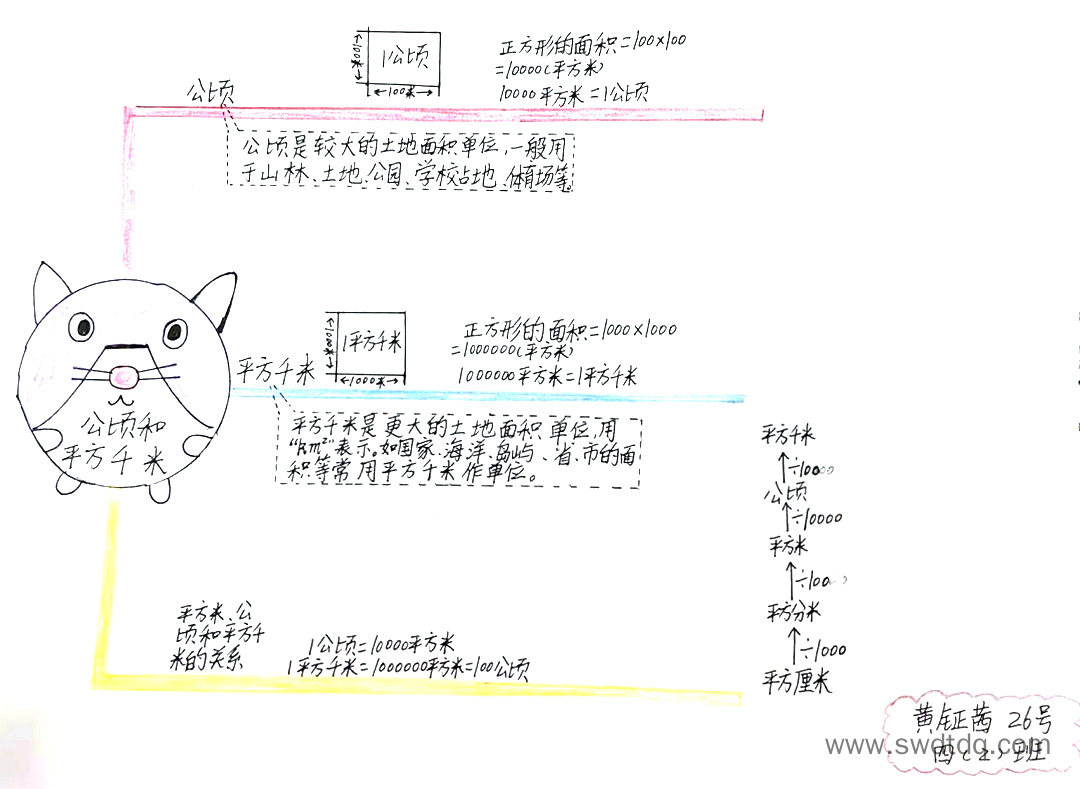 1公顷
100米
100米
正方形的面积=100×100
=10000(平方米)
10000平方米=1公顷
公顷
公顷是较大的土地面积单位,一般用
于山林、土地、公园、学校占地、体育场等。
1平方千米
1000米
1000米
正方形的面积=1000×1000
=1000000(平方米)
1000000平方米=1平方千米
平方千米
平方千米是更大的土地面积单位,用
“km²”表示。如国家、海洋、岛屿、省、市的面
积等常用平方千米作单位。
公顷和
平方千米
平方米、公
顷和平方千
米的关系
1公顷=10000平方米
1平方千米=1000000平方米=100公顷
平方千米
÷100
公顷
÷10000
平方米
÷100
平方分米
÷1000
平方厘米
黄钲茜 26号
四(2)班
www.swdtdq.com